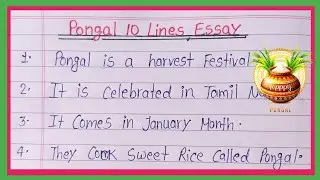 Pongal 10 Lines Essay
1. Pongal is a harvest Festival
2. It is celebrated in Tamil
3. It Comes in January Month.
4. They Cook Sweet Rice Called Pongal.
HAPPY
PONGAL